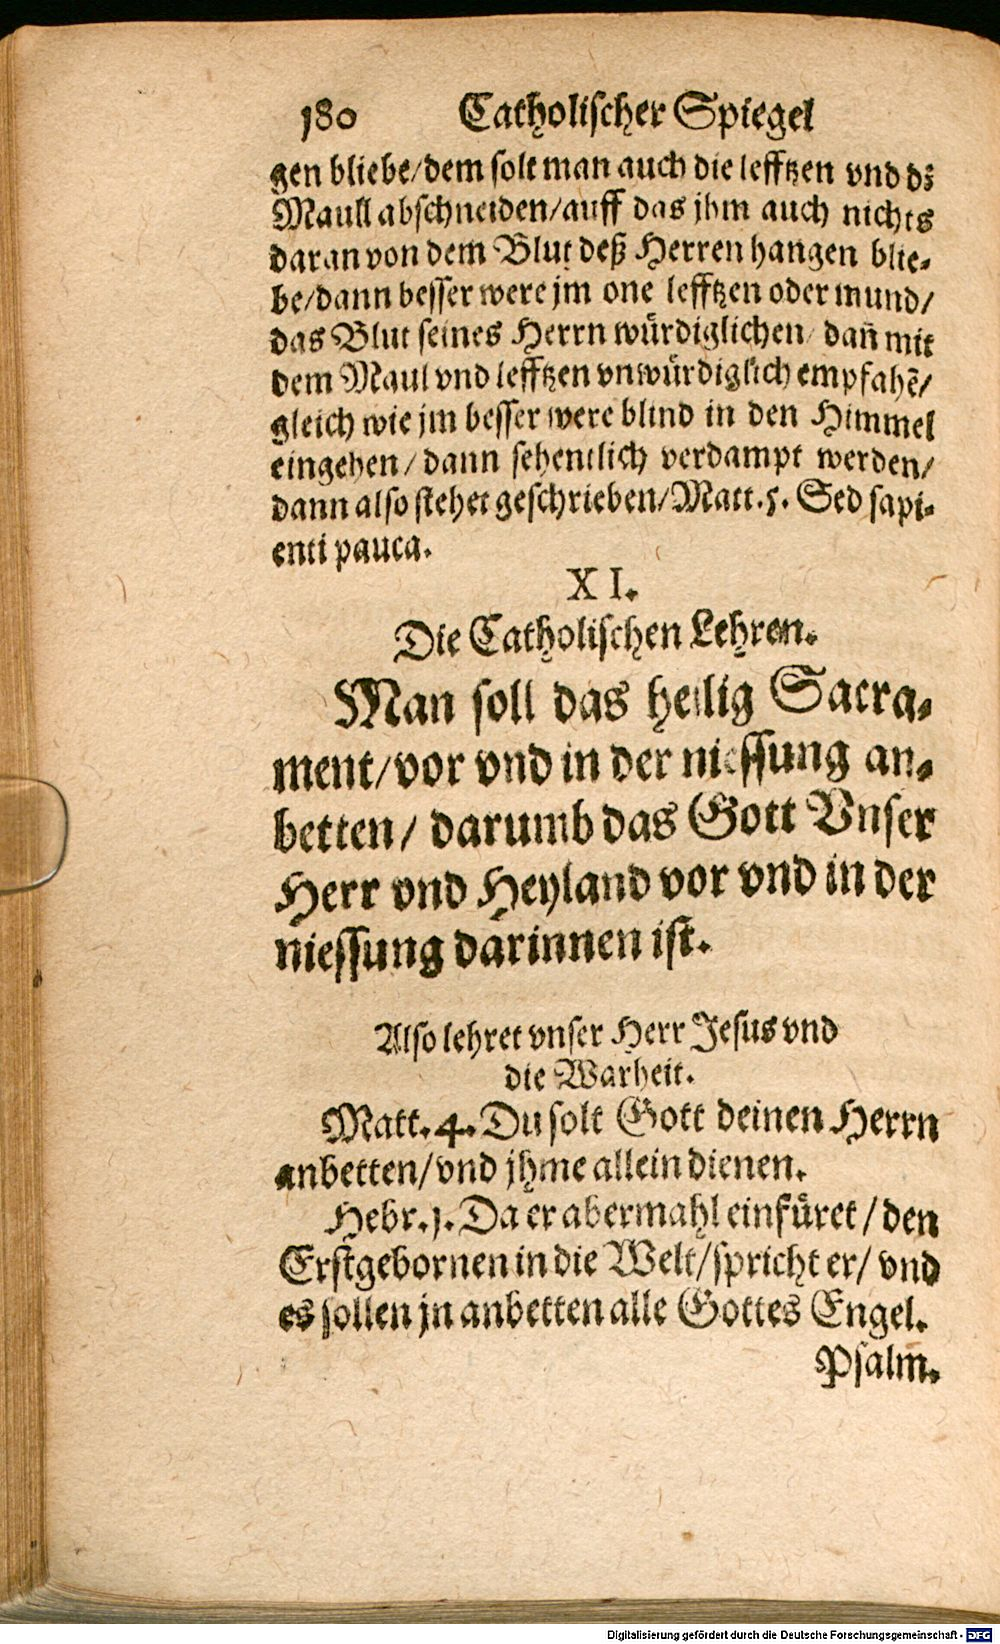 180 Catholischer Spiegel
gen bliebe/dem solt man auch die lefftzen vnd dz
Maull abschneiden/auff das jhm auch nichts
daran von dem Blut deß Herren hangen blie-
be/dann besser were jm one lefftzen oder mund/
das Blut seines Herrn würdiglichen/ dañ mit
dem Maul vnd lefftzen vnwürdiglich empfahẽ/
gleich wie jm besser were blind in den Himmel
eingehen/ dann sehentlich verdampt werden/
dann also stehet geschrieben/Matt.5. Sed sapi-
enti pauca.
XI.
Die Catholischen Lehren.
Man soll das heilig Sacra-
ment/vor vnd in der niessung an-
betten/ darumb das Gott Vnser
Herr vnd Heyland vor vnd in der
niessung darinnen ist.
Also lehret vnser Herr Jesus vnd
die Warheit.
Matt.4. Du solt Gott deinen Herrn
anbetten/vnd jhme allein dienen.
Hebr.1. Da er abermahl einfüret/den
Erstgebornen in die Welt/spricht er/ vnd
es sollen jn anbetten alle Gottes Engel.
Psalm.
Digitalisierung gefördert durch die Deutsche Forschungsgemeinschaft - DFG